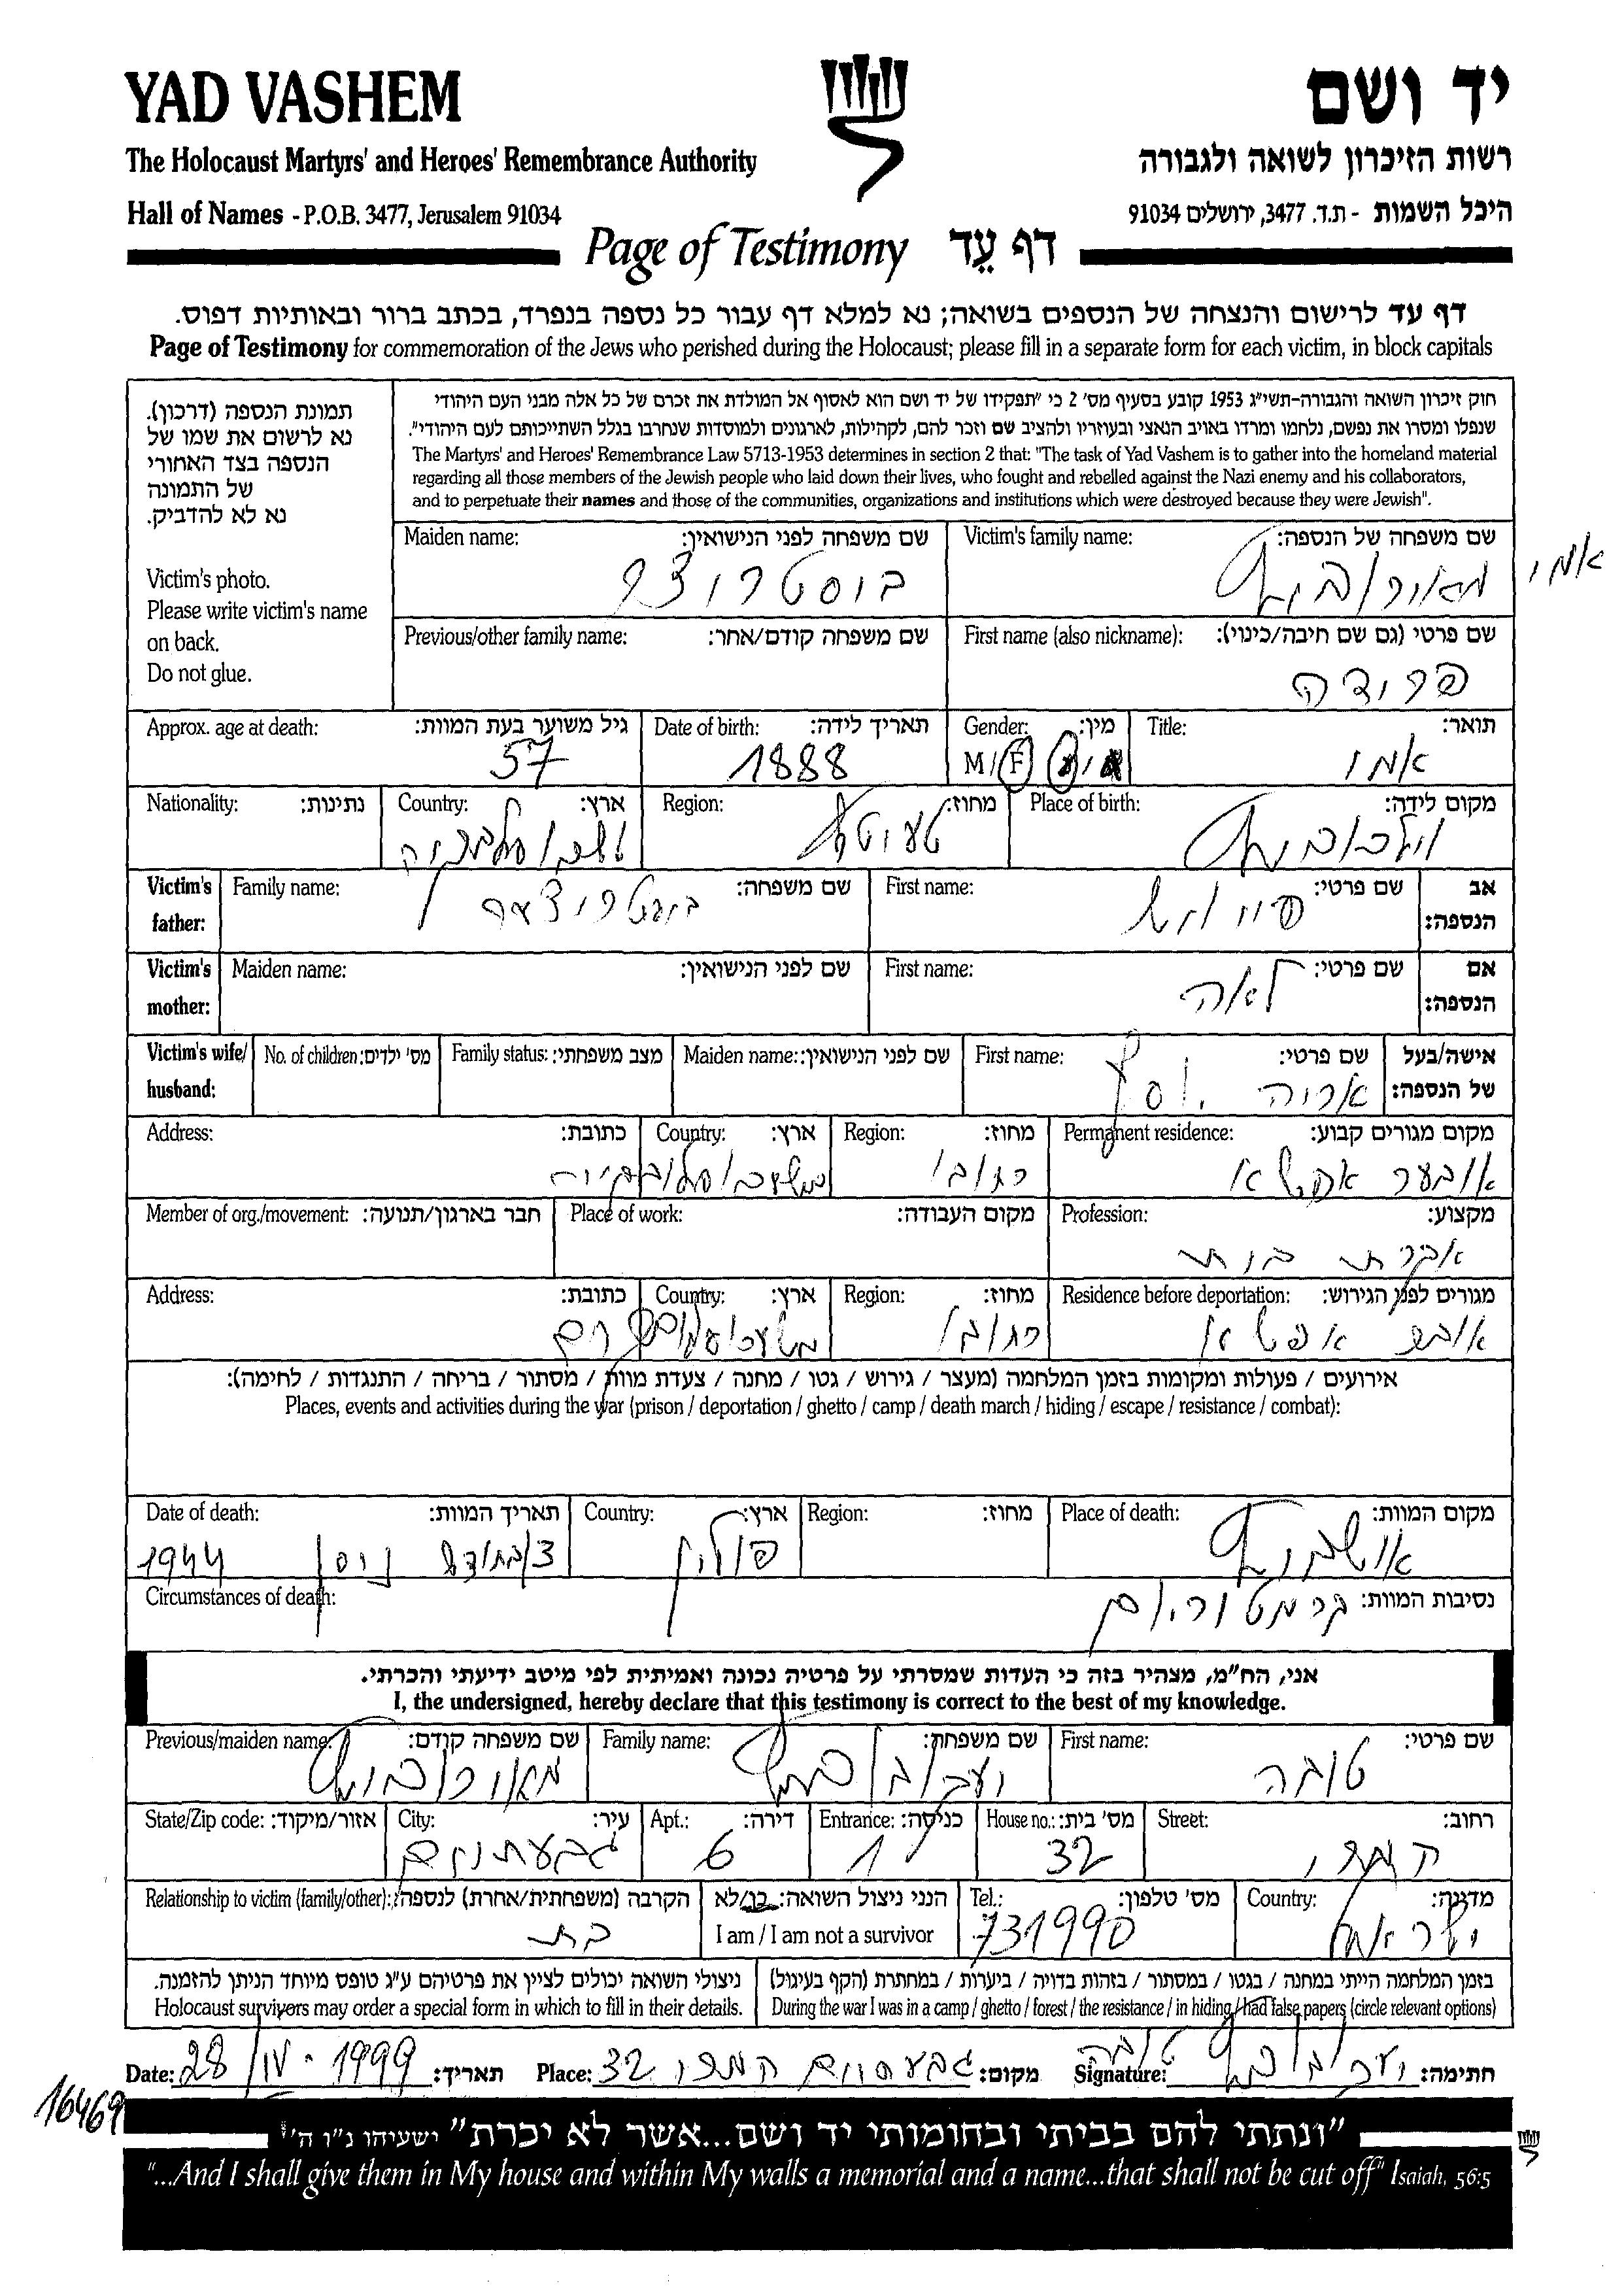 YAD VASHEM
יד ושם
The Holocaust Martyrs' and Heroes' Remembrance Authority
רשות הזיכרון לשואה ולגבורה
Hall of Names - P.O.B. 3477, Jerusalem 91034
היכל השמות - ת.ד. 3477, ירושלים 91034
Page of Testimony דף עֵד
דף עד לרישום והנצחה של הנספים בשואה; נא למלא דף עבור כל נספה בנפרד, בכתב ברור ובאותיות דפוס.
Page of Testimony for commemoration of the Jews who perished during the Holocaust; please fill in a separate form for each victim, in block capitals
תמונת הנספה (דרכון).
נא לרשום את שמו של
הנספה בצד האחורי
של התמונה
נא לא להדביק.
Victim's photo.
Please write victim's name
on back.
Do not glue.
חוק זיכרון השואה והגבורה-תשי"ג 1953 קובע בסעיף מס' 2 כי "תפקידו של יד ושם הוא לאסוף אל המולדת את זכרם של כל אלה מבני העם היהודי
שנפלו ומסרו את נפשם, נלחמו ומרדו באויב הנאצי ובעוזריו ולהציב שם וזכר להם, לקהילות, לארגונים ולמוסדות שנחרבו בגלל השתייכותם לעם היהודי".
The Martyrs' and Heroes' Remembrance Law 5713-1953 determines in section 2 that: "The task of Yad Vashem is to gather into the homeland material
regarding all those members of the Jewish people who laid down their lives, who fought and rebelled against the Nazi enemy and his collaborators,
and to perpetuate their names and those of the communities, organizations and institutions which were destroyed because they were Jewish".
Victim's family name: שם משפחה של הנספה:
מאירוביץ
אמי
Maiden name: שם משפחה לפני הנישואין:
First name (also nickname): שם פרטי (גם שם חיבה/כינוי):
פרידה
Previous/other family name: שם משפחה קודם/אחר:
Title: תואר:
אמי
Gender: מין:
M / F
Date of birth: תאריך לידה:
1888
Approx. age at death: גיל משוער בעת המוות:
57
Place of birth: מקום לידה:
Region: מחוז:
Country: ארץ:
Nationality: נתינות:
Victim's father: אב הנספה:
First name: שם פרטי:
Family name: שם משפחה:
Victim's mother: אם הנספה:
First name: שם פרטי:
לאה
Maiden name: שם לפני הנישואין:
Victim's wife/ husband: אישה/בעל של הנספה:
First name: שם פרטי:
אריה יוסף
Maiden name: שם לפני הנישואין:
Family status: מצב משפחתי:
No. of children: מס' ילדים:
Permanent residence: מקום מגורים קבוע:
Region: מחוז:
Country: ארץ:
Address: כתובת:
Profession: מקצוע:
עקרת בית
Place of work: מקום העבודה:
Member of org./movement: חבר בארגון/תנועה:
Residence before deportation: מגורים לפני הגירוש:
Region: מחוז:
Country: ארץ:
Address: כתובת:
אירועים / פעולות ומקומות בזמן המלחמה (מעצר / גירוש / גטו / מחנה / צעדת מוות / מסתור / בריחה / התנגדות / לחימה):
Places, events and activities during the war (prison / deportation / ghetto / camp / death march / hiding / escape / resistance / combat):
Place of death: מקום המוות:
אושביץ
Region: מחוז:
Country: ארץ:
פולין
Date of death: תאריך המוות:
ניסן 1944
Circumstances of death: נסיבות המוות:
קרמטוריום
אני, הח"מ, מצהיר בזה כי העדות שמסרתי על פרטיה נכונה ואמיתית לפי מיטב ידיעתי והכרתי.
I, the undersigned, hereby declare that this testimony is correct to the best of my knowledge.
First name: שם פרטי:
טובה
Family name: שם משפחה:
יעקובוביץ
Previous/maiden name: שם משפחה קודם:
מאירוביץ
Street: רחוב:
House no.: מס' בית:
32
Entrance: כניסה:
1
Apt.: דירה:
6
City: עיר:
גבעתיים
State/Zip code: אזור/מיקוד:
Country: מדינה:
ישראל
Tel.: מס' טלפון:
731990
הנני ניצול השואה: כן/לא
I am / I am not a survivor
Relationship to victim (family/other): הקרבה (משפחתית/אחרת) לנספה:
בת
בזמן המלחמה הייתי במחנה / בגטו / במסתור / בזהות בדויה / ביערות / במחתרת (הקף בעיגול)
During the war I was in a camp / ghetto / forest / the resistance / in hiding / had false papers (circle relevant options)
ניצולי השואה יכולים לציין את פרטיהם ע"ג טופס מיוחד הניתן להזמנה.
Holocaust survivors may order a special form in which to fill in their details.
Date: 28/IV - 1999 תאריך:
Place: גבעתיים 32 מקום:
Signature: יעקובוביץ טובה חתימה:
16469
"ונתתי להם בביתי ובחומותי יד ושם...אשר לא יכרת" ישעיהו נ"ו ה'
"...And I shall give them in My house and within My walls a memorial and a name...that shall not be cut off" Isaiah, 56:5